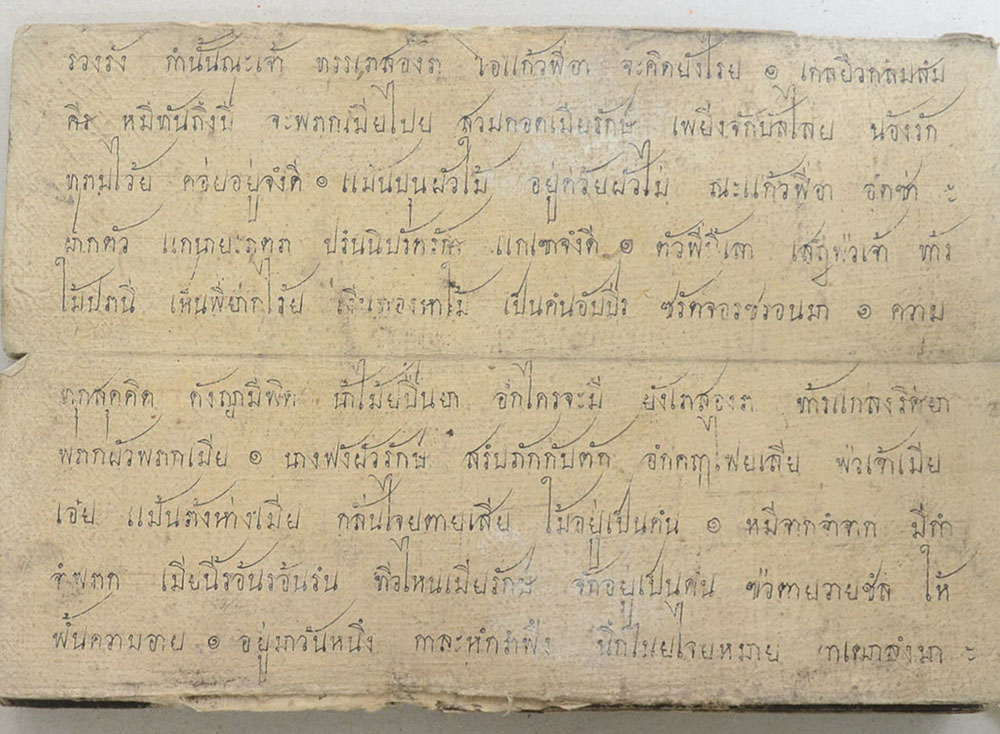 รวงรัง กำนั้นณะเจ้า ทรรเทสองรา โอแก้วพี่อา จะคิดยังไรย ๑ เกลยิวกลมสม
คิร หมีทันถึงปี จะพภกเมียไปย สวมกอดเมียรักษ์ เพยีงจักบัลไลย น้องรัก
ไว้ย ค่อยอยู่จงดี ๑ แม้นบุนผัวใม้ อยู่ด้วยผัวใม่ ณะแก้วพี่อา อกซำ
ฝากตัว ปรนนิบัดรักษ แกเขาจงดี ๑ ตัวพี่นี้เลา พ่วเจ้า ท้าว
ใม้ปรานี เห็นพี่ยากไร้ย เงินทองหาใม้ เป็นคนอับปัร ซรัดจอรซรอนมา ๑ ความ
ทุกสุดคิด ดังถูกมีพิด น้ำใม้ยปืนยา อกใครจะมี ยังเราสองรา ท้าวแกลงริศยา
พภกผัวพภกเมีย ๑ นางฟังผัวรักษ์ สรบภักกับตัก อกดาฺเฟยเสีย พ่วเจ้าเมีย
เอ๋ย แม้นรังห่างเมีย กลั่นไจยตายเสีย ใม้อยู่เป็นคน ๑ หมีจากจำจาก มีกำ
จำพภก เมียนี้รอ้นรอ้นรน ทีวไหนเมียรักษ์ จักอยู่เป็นคน ข่วตายวายชล ให้
พ้นความอาย ๑ อยู่มาวันหนึ่ง นึกไนยไจยหมาย ลงมา